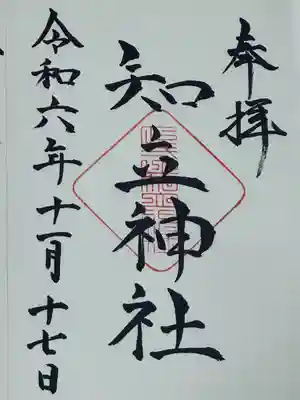 奉拝
知立神社
令和六年十一月十七日